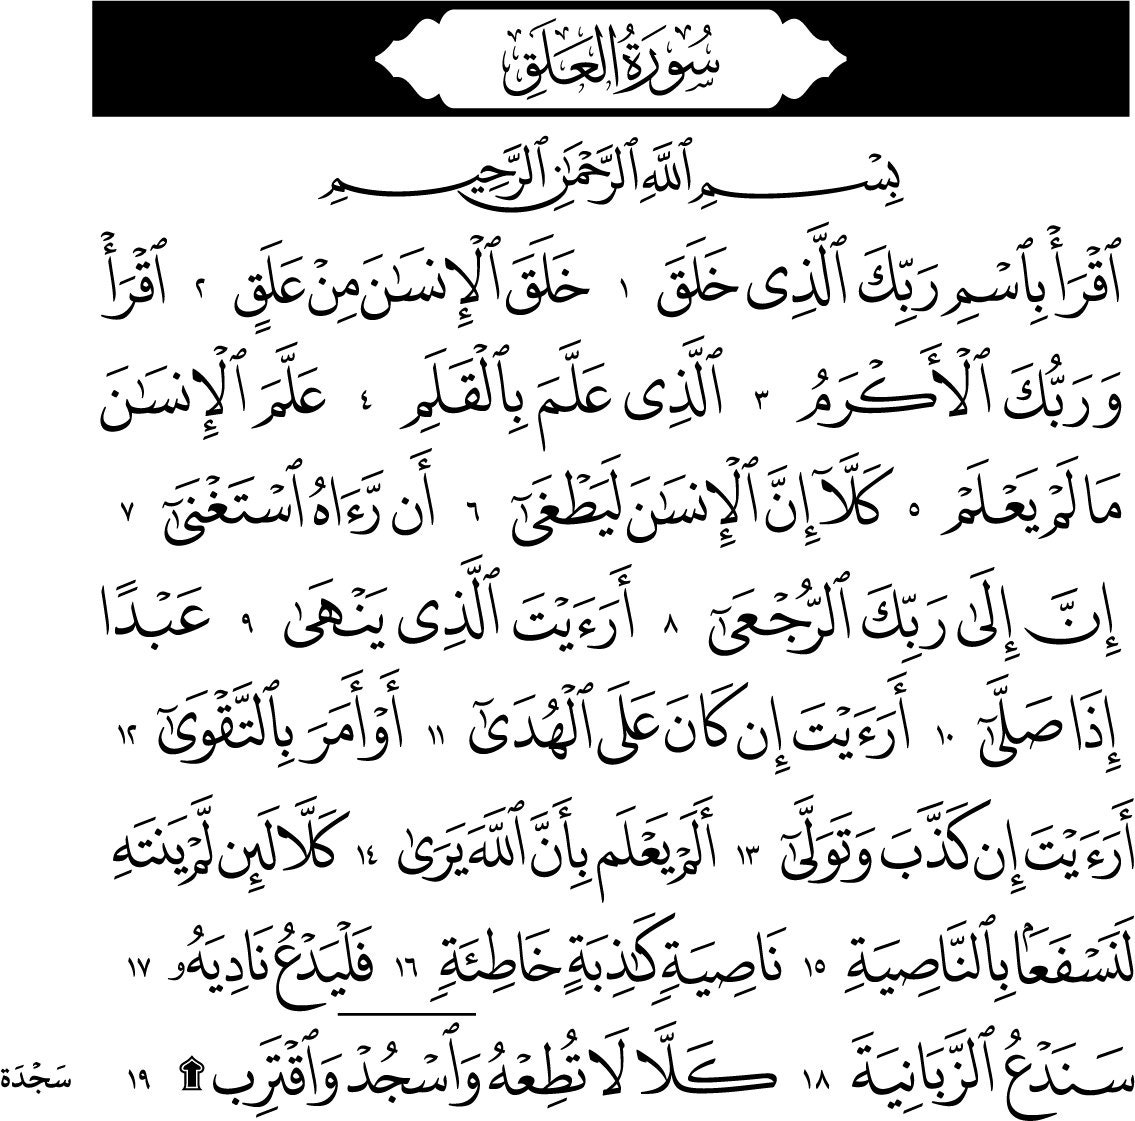 سُورَةُ الْعَلَقِ
بِسْمِ ٱللَّهِ ٱلرَّحْمَٰنِ ٱلرَّحِيمِ
ٱقْرَأْ بِٱسْمِ رَبِّكَ ٱلَّذِى خَلَقَ ١ خَلَقَ ٱلْإِنسَٰنَ مِنْ عَلَقٍ ٢ ٱقْرَأْ
وَرَبُّكَ ٱلْأَكْرَمُ ٣ ٱلَّذِى عَلَّمَ بِٱلْقَلَمِ ٤ عَلَّمَ ٱلْإِنسَٰنَ
مَا لَمْ يَعْلَمْ ٥ كَلَّآ إِنَّ ٱلْإِنسَٰنَ لَيَطْغَىٰٓ ٦ أَن رَّءَاهُ ٱسْتَغْنَىٰٓ ٧
إِنَّ إِلَىٰ رَبِّكَ ٱلرُّجْعَىٰٓ ٨ أَرَءَيْتَ ٱلَّذِى يَنْهَىٰ ٩ عَبْدًا
إِذَا صَلَّىٰٓ ١٠ أَرَءَيْتَ إِن كَانَ عَلَى ٱلْهُدَىٰٓ ١١ أَوْ أَمَرَ بِٱلتَّقْوَىٰٓ ١٢
أَرَءَيْتَ إِن كَذَّبَ وَتَوَلَّىٰٓ ١٣ أَلَمْ يَعْلَم بِأَنَّ ٱللَّهَ يَرَىٰ ١٤ كَلَّا لَئِن لَّمْ يَنتَهِ
لَنَسْفَعَۢا بِٱلنَّاصِيَةِ ١٥ نَاصِيَةٍ كَٰذِبَةٍ خَاطِئَةٍ ١٦ فَلْيَدْعُ نَادِيَهُۥ ١٧
سَنَدْعُ ٱلزَّبَانِيَةَ ١٨ كَلَّا لَا تُطِعْهُ وَٱسْجُدْ وَٱقْتَرِب ۩ ١٩ سَجْدَة